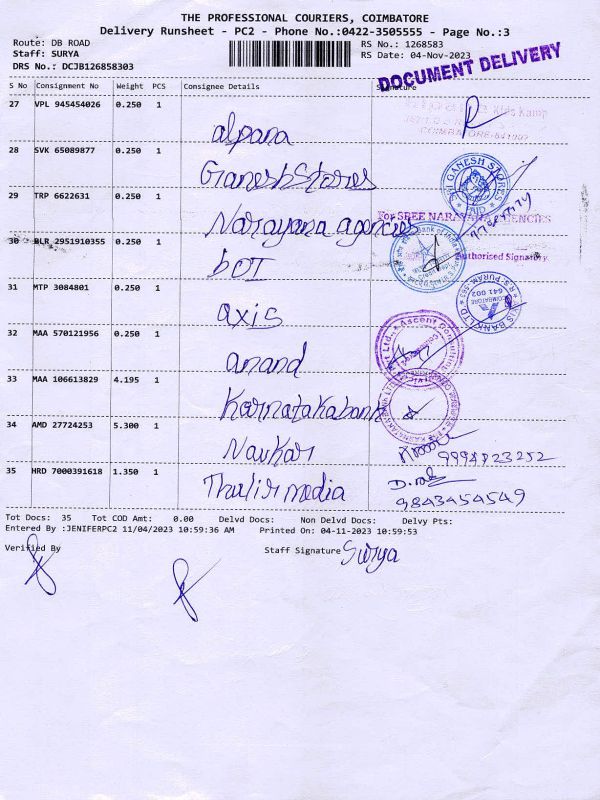 THE PROFESSIONAL COURIERS, COIMBATORE
Delivery Runsheet - PC2 - Phone No.:0422-3505555 - Page No.:3
Route: DB ROAD
RS No.: 1268583
Staff: SURYA
RS Date: 04-Nov-2023
DRS No.: DCJB126858303
DOCUMENT DELIVERY
S No Consignment No Weight PCS Consignee Details Signature
27 VPL 945454026 0.250 1
Kids Kamp
COIMBATORE-641002
alpana
28 SVK 65089877 0.250 1
Ganesh Stores
SRI GANESH STORES
PAID
29 TRP 6622631 0.250 1
Narayana agencies
For SREE NARAYANA AGENCIES
Authorised Signatory.
30 BLR 2951910355 0.250 1
boI
31 MTP 3084801 0.250 1
axis
AXIS BANK LTD
R.S PURAM
COIMBATORE
641 002
32 MAA 570121956 0.250 1
anand
33 MAA 106613829 4.195 1
Karnataka bank
34 AMD 27724253 5.300 1
Navkar
35 HRD 7000391618 1.350 1
Thulir media
D.
9843454549
Tot Docs: 35 Tot COD Amt: 0.00 Delvd Docs: Non Delvd Docs: Delvy Pts:
Entered By :JENIFERPC2 11/04/2023 10:59:36 AM Printed On: 04-11-2023 10:59:53
Verified By
Staff Signature Surya